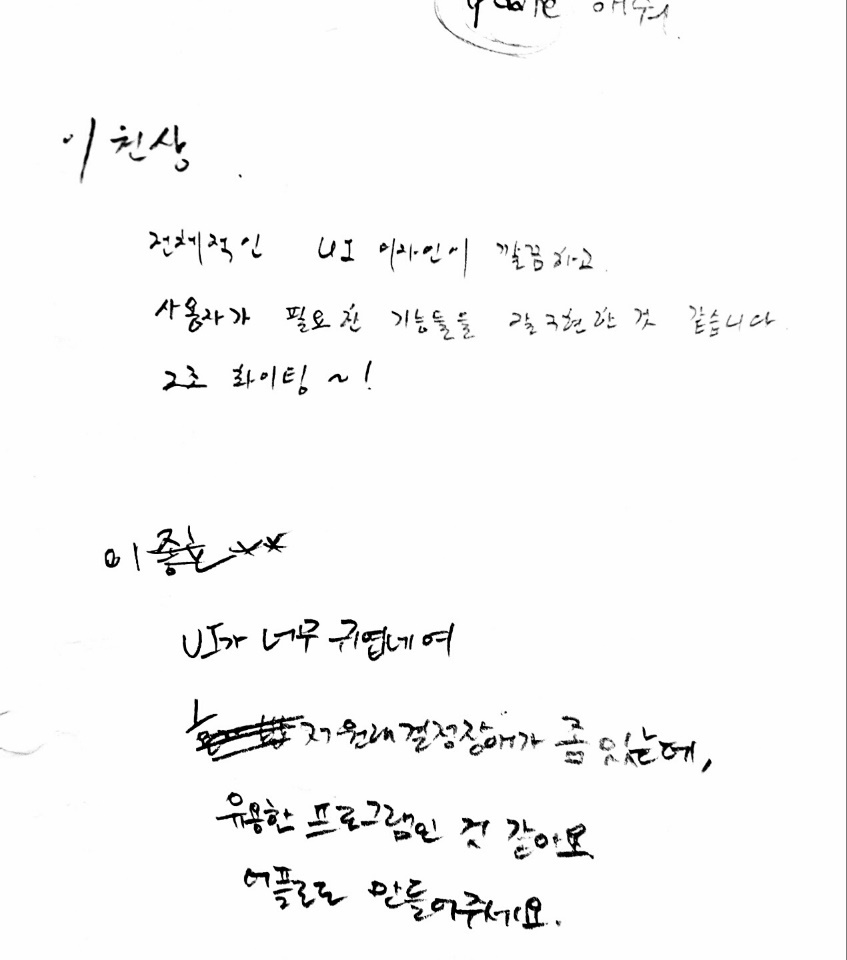 이친상
전체적인 UI 디자인이 깔끔하고
사용자가 필요한 기능들을 잘 구현한 것 같습니다
2조 화이팅 ~!
이종호
UI가 너무 귀엽네여
저 원래 결정장애가 좀 있는데,
유용한 프로그램인 것 같아요
어플로도 만들어주세요.